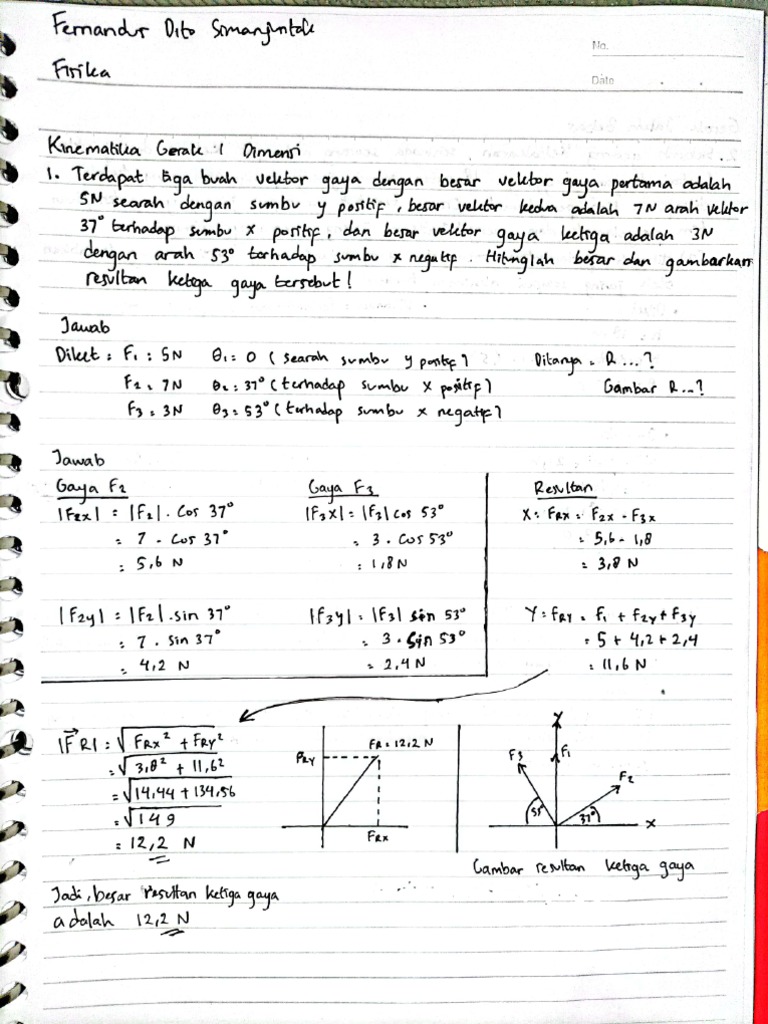 Fernandur Dito Simanjuntak
No.
Fisika
Date . .
Kinematika Gerak 1 Dimensi
1. Terdapat tiga buah vektor gaya dengan besar vektor gaya pertama adalah
5N searah dengan sumbu y positif, besar vektor kedua adalah 7N arah vektor
37° terhadap sumbu x positif, dan besar vektor gaya ketiga adalah 3N
dengan arah 53° terhadap sumbu x negatif. Hitunglah besar dan gambarkan
resultan ketiga gaya tersebut!
Jawab
Diket : F1 : 5N θ1 = 0 (searah sumbu y positif) Ditanya = R ...?
F2 = 7N θ2 = 37° (terhadap sumbu x positif) Gambar R...?
F3 = 3N θ3 = 53° (terhadap sumbu x negatif)
Jawab
Gaya F2 Gaya F3 Resultan
|F2x| = |F2| . Cos 37° |F3x| = |F3| cos 53° X = FRX = F2x - F3x
= 7 . Cos 37° = 3 . Cos 53° = 5,6 - 1,8
= 5,6 N = 1,8 N = 3,8 N
|F2y| = |F2| . sin 37° |F3y| = |F3| sin 53° Y = FRY = F1 + F2y + F3y
= 7 . sin 37° = 3 . Sin 53° = 5 + 4,2 + 2,4
= 4,2 N = 2,4 N = 11,6 N
|F⃗R| = √FRX² + FRY²
= √3,8² + 11,6²
= √14,44 + 134,56
= √149
= 12,2 N
FRY FR = 12,2 N
FRX
Y
F3 F1 F2
53° 37° X
Gambar resultan ketiga gaya
Jadi, besar resultan ketiga gaya
adalah 12,2 N